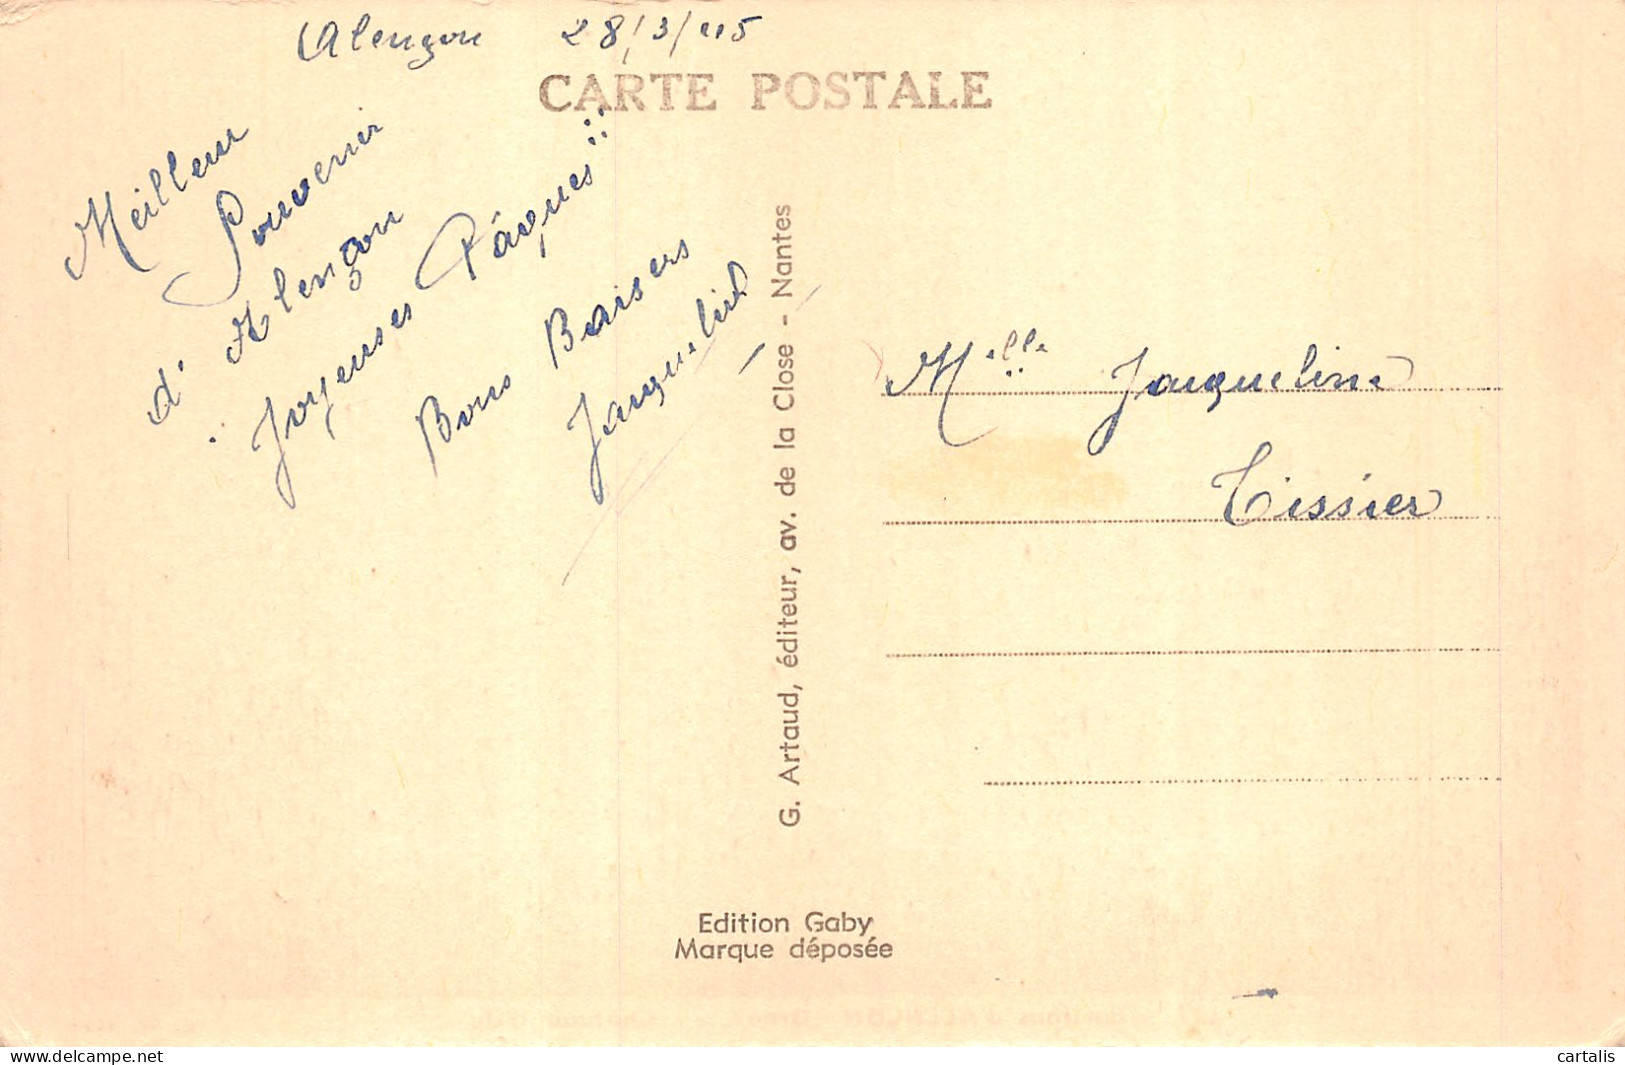 Alençon 28/3/45
CARTE POSTALE
Meilleur
Souvenir
d'Alençon
Joyeuses Pâques!!
Bons Baisers
Jacqueline
G. Artaud, éditeur, av. de la Close - Nantes
Melle Jacqueline
Tissier
Edition Gaby
Marque déposée
cartalis